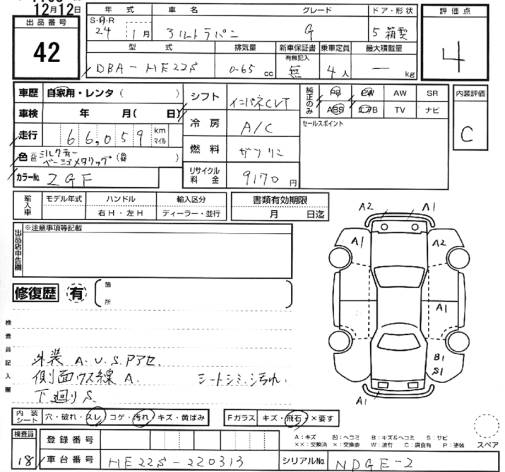 12月12日
出品番号
42
年式
車名
グレード
ドア・形状
評価点
S・H・R
24年 1月
アルトラパン
G
5 箱型
4
型式
排気量
新車保証書
有無記入
乗車定員
最大積載量
DBA-HE22S
0.65 cc
無
4人
― kg
車歴 自家用・レンタ( )
シフト
インパネCVT
純正のみ
PS PW AW SR
ABS エアB TV ナビ
内装評価
C
車検 年 月( 日)
冷房
A/C
セールスポイント
走行 66,059 km マイル
燃料
ガソリン
色
ミルクティー
ベージュメタリック
カラーNo.
ZGF
リサイクル料金
9170円
輸入車
モデル年式
ハンドル
輸入区分
書類有効期限
右H・左H
ディーラー・並行
月 日迄
出品店申告欄
※注意事項等記載
修復歴 有
箇所
検査員記入欄
外装 A.U.S.Pアセ
側面クス線 A.
シートシミ、汚れ
下廻りS
A2
A1
A1
A1
A1
A2
B1
S1
A1
内装シート
穴・破れ・スレ・コゲ・汚れ・キズ・黄ばみ
Fガラス
キズ・飛石・×要す
A:キズ U:ヘコミ B:キズ&ヘコミ S:サビ
××:交換済 ×:交換要 W:波打 C:腐食有 P:塗装
スペア
検査員
18
登録番号
車台番号
HE22S-220313
シリアルNo.
NDGE-2